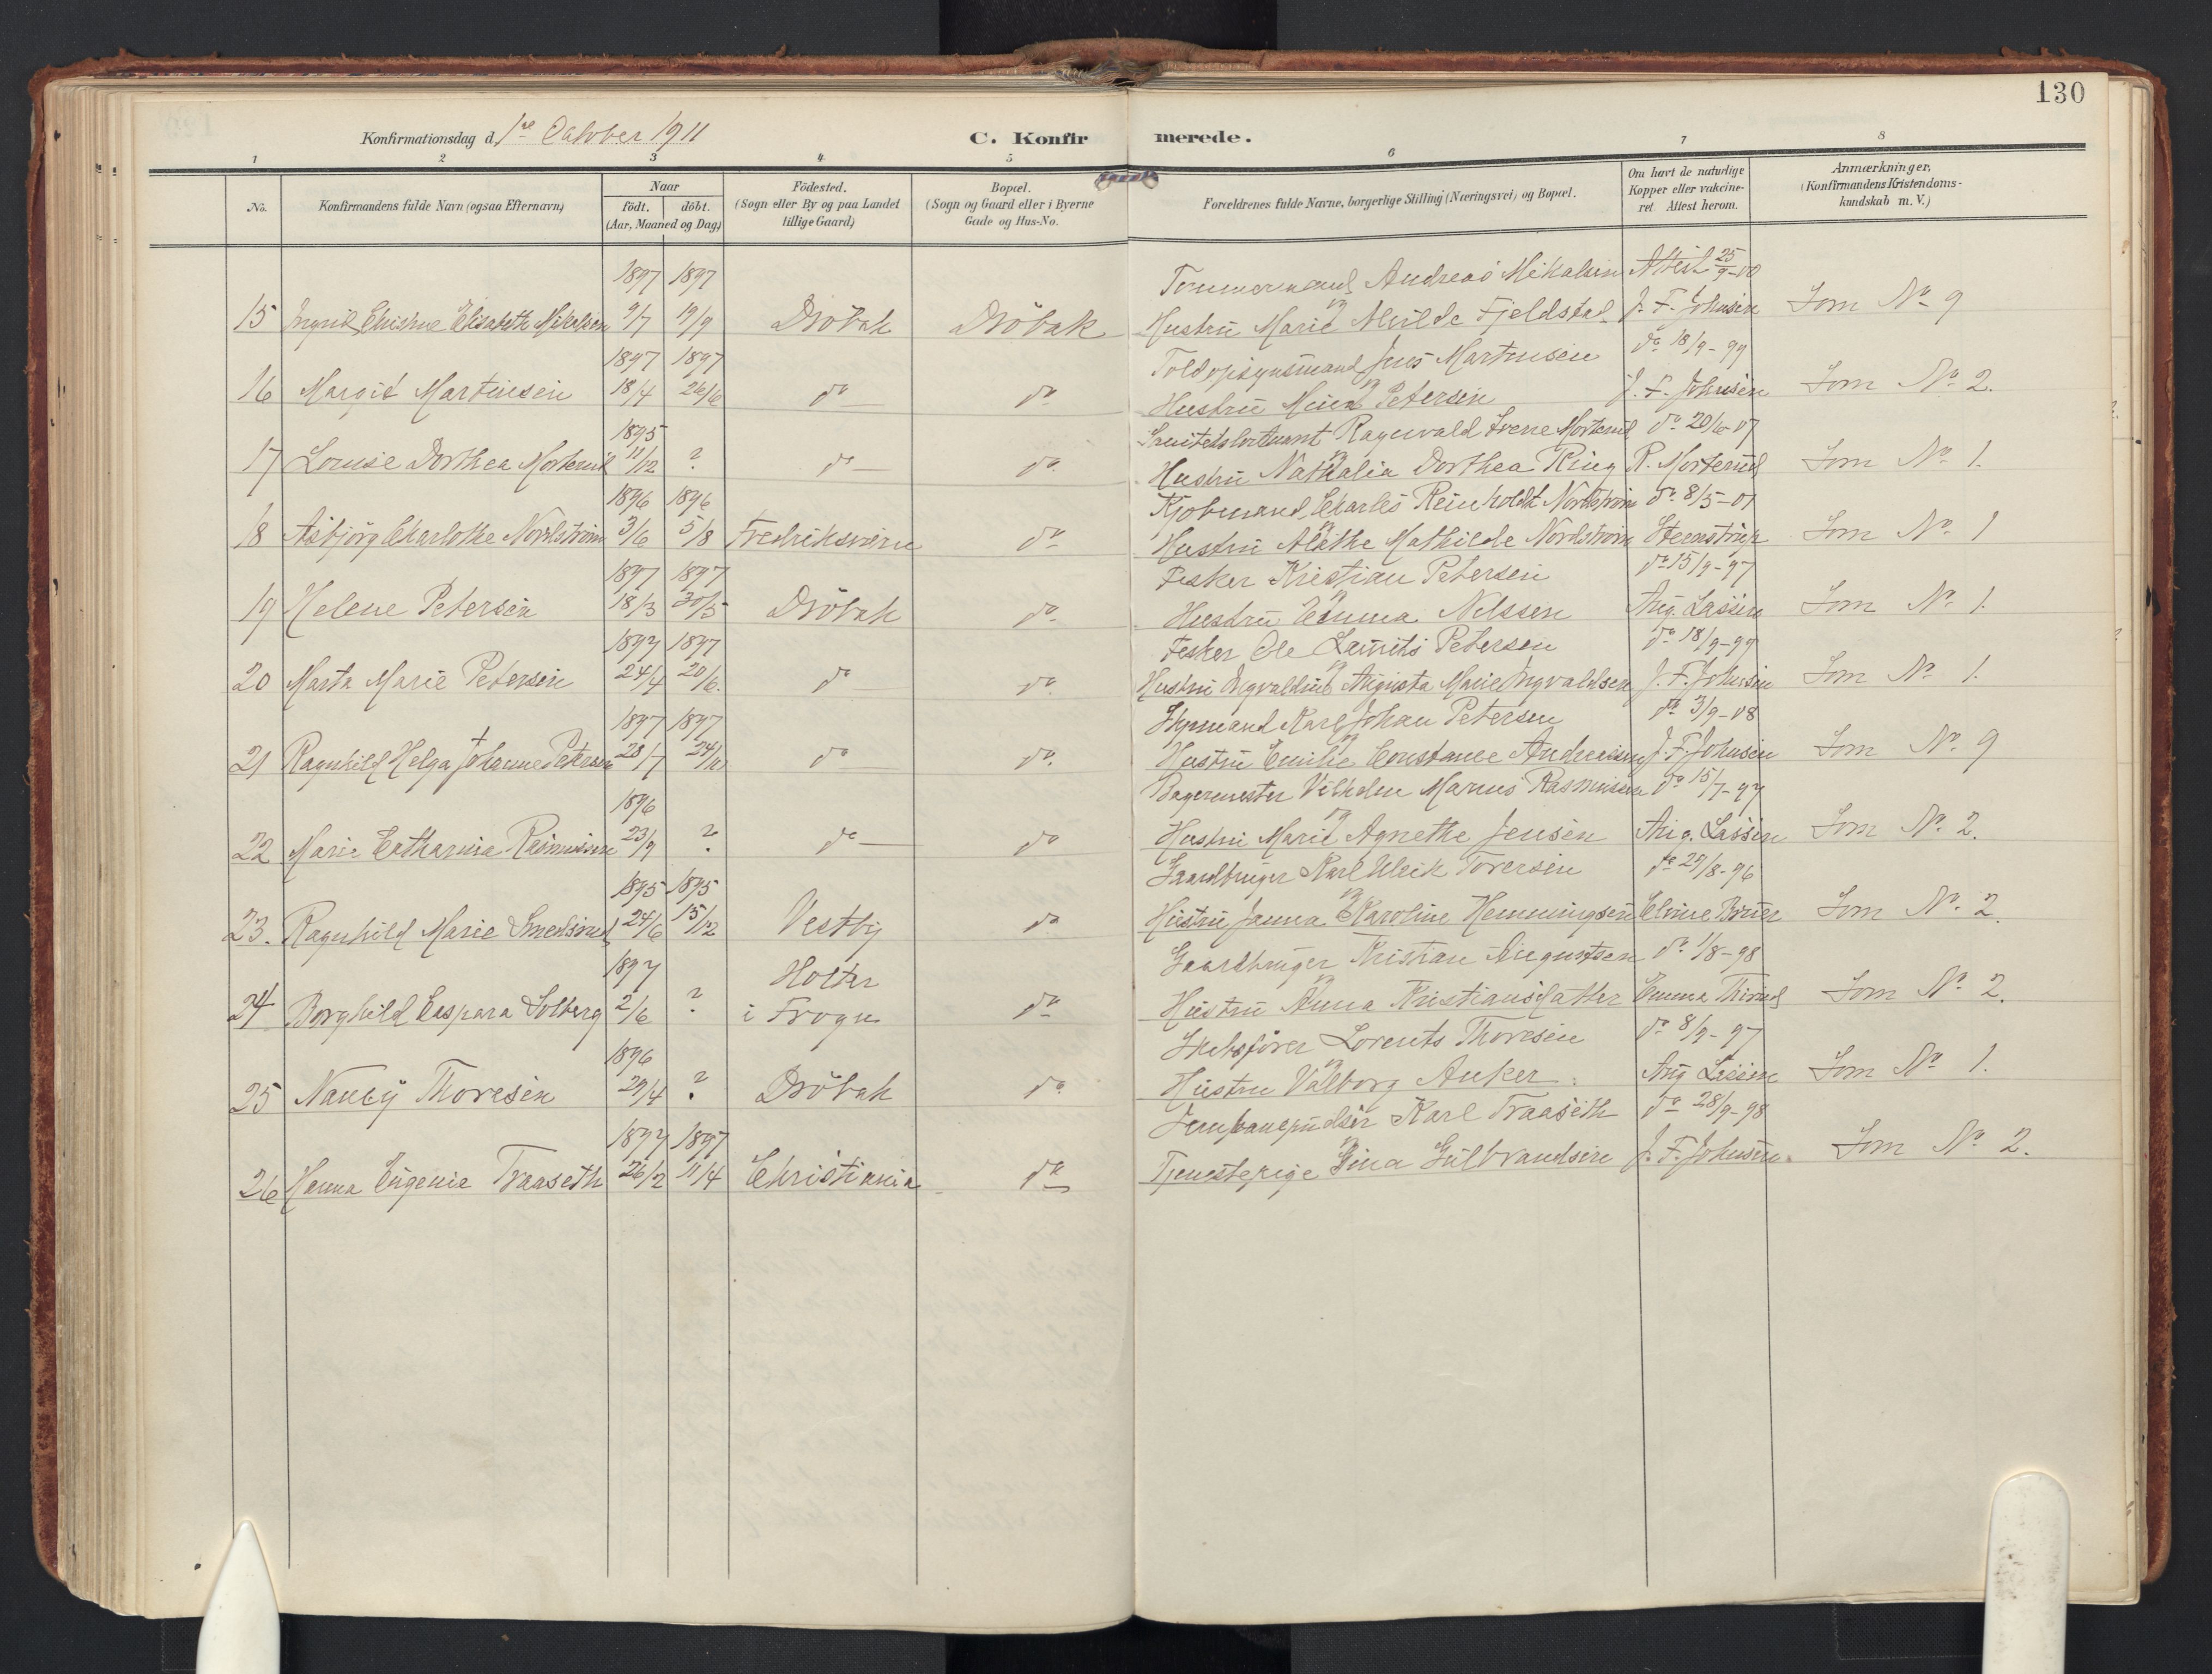 130
Konfirmationsdag d. 1ste October 1911
C. Konfirmerede.
1 2 3 4 5 6 7 8
No.
Konfirmandens fulde Navn (ogsaa Efternavn)
Naar
födt. döbt.
(Aar, Maaned og Dag)
Födested.
(Sogn eller By og paa Landet
tillige Gaard)
Bopæl.
(Sogn og Gaard eller i Byerne
Gade og Hus-No.
Forældrenes fulde Navne, borgerlige Stilling (Næringsvei) og Bopæl.
Om havt de naturlige
Kopper eller vakcine-
ret Attest herom.
Anmærkninger.
(Konfirmandens Kristendoms-
kundskab m. V.)
1897 1897 Tømmermand Andreas Mikalsen Attest 25/9-00
15 Ingrid Christine Elisabeth Mikalsen 9/7 19/9 Dröbak Dröbak Hustru Marie Alvilde Fjeldstad J. F. Johnsen Som No 9
1897 1897 Toldopsynsmand Jens Martinsen do 18/9-99
16 Margit Martinsen 18/4 26/6 do do Hustru Petersen J. F. Johnsen Som No 2.
1895 Ragnvald Morterud do 20/6-07
17 Louise Dorthea Morterud 11/12 ? do do Hustru Nathalia Dorthea Ring R. Morterud Som No 1.
1896 1896 Kjøbmand Charles Reinholdt Nordström do 8/5-01
18 Asbjörg Charlotte Nordström 3/6 5/8 Fredriksværn do Hustru Mathilde Nordström Steenstrup Som No 1
1897 1897 Fisker Kristian Petersen do 15/9-97
19 Helene Petersen 18/3 30/5 Dröbak do Hustru Emma Nilssen Aug. Lassen Som No 1.
1897 1897 Fisker Ole Lauritz Petersen do 18/9-99
20 Marta Marie Petersen 24/4 20/6 do do Hustru Augusta Marie Ingvaldsen J. F. Johnsen Som No 1.
1897 1897 Karl Johan Petersen do 3/9-08
21 Ragnhild Helga Johanne Petersen 28/7 do do Hustru Emilie Constance Andreasen J. F. Johnsen Som No 9
1896 Bagermester Vilhelm Marius Rasmussen do 15/7-97
22 Marie Catharina Rasmussen 23/9 ? do do Hustru Marie Agnethe Jensen Aug. Lassen Som No 2.
1895 1895 Gaardbruger Karl Ulrik Toversen do 29/8-96
23. Ragnhild Marie Smedsrud 24/6 15/12 Vestby do Hustru Janna Karoline Hemmingsen Som No 2.
1897 Holter Gaardbruger Kristian Augustsen do 1/8-98
24 Borghild Caspara Solberg 2/6 ? i Frogn do Hustru Anna Kristiansdatter Emma Som No 2.
1896 Skibsförer Lorents Thoresen do 8/9-97
25 Nancy Thoresen 29/4 ? Dröbak do Hustru Valborg Anker Aug. Lassen Som No 1.
1897 1897 Karl Traaseth do 28/9-98
26 Hanna Eugenie Traaseth 26/2 11/4 Christiania do Tjenestepige Gina Gulbrandsen J. F. Johnsen Som No 2.